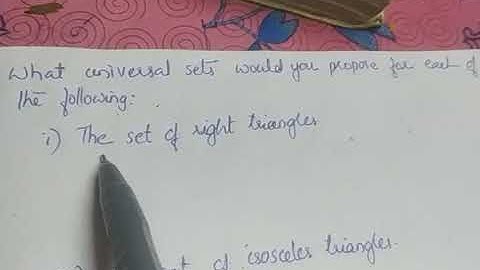 What universal sets would you propose for each of
the following:
i) The set of right triangles
of isosceles triangles.